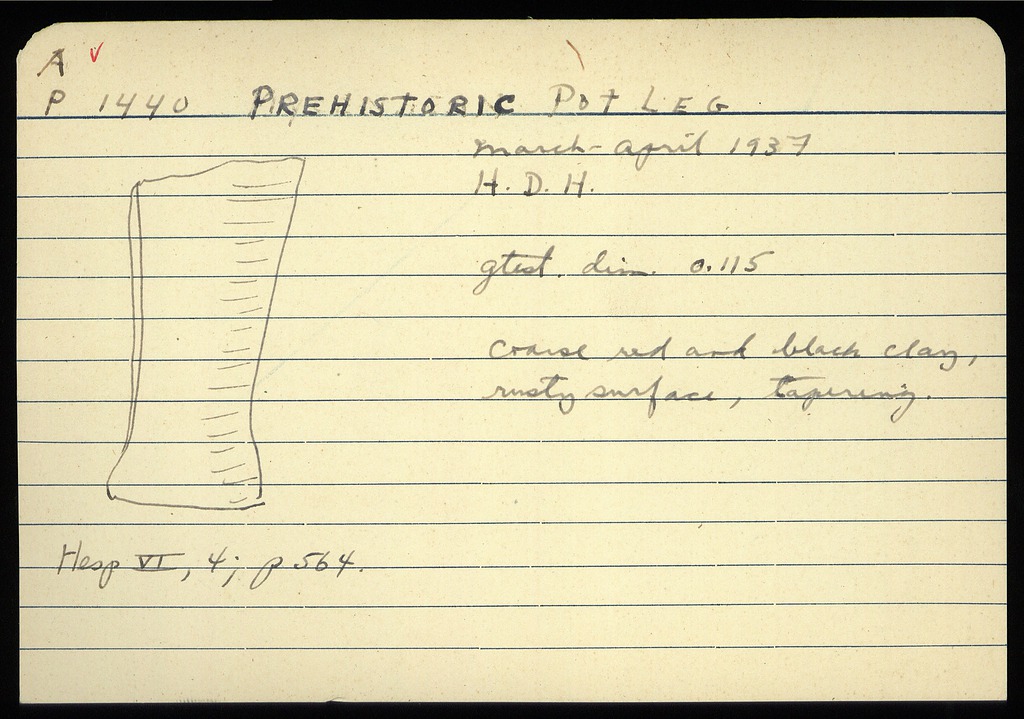 A
P 1440 PREHISTORIC POT LEG
march-april 1937
H. D. H.
gtest. dim. 0.115
coarse red and black clay,
rusty surface, tapering.
Hesp VI, 4; p 564.